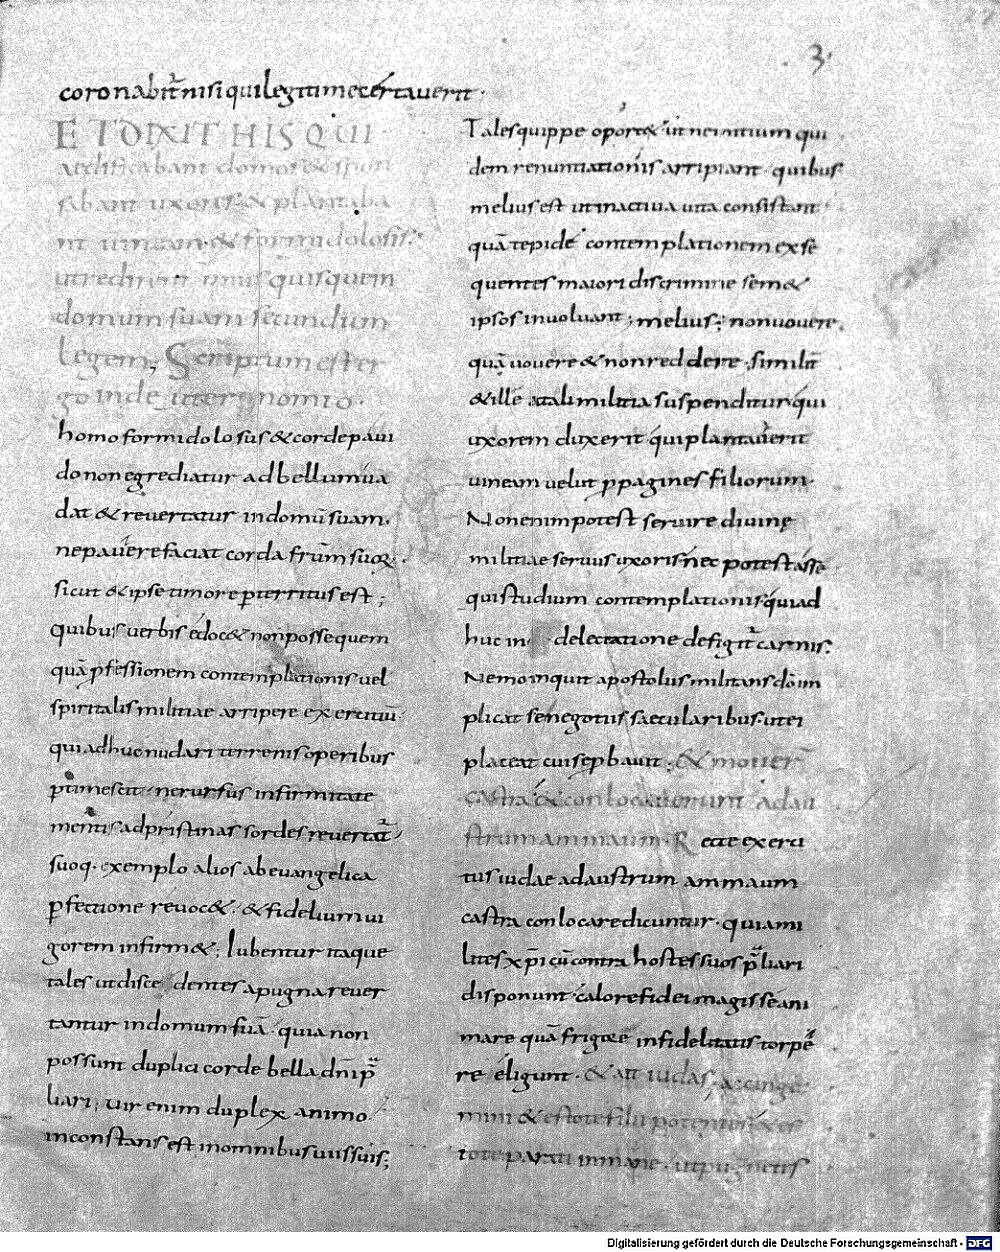 3.
coronabit̄ nisi qui legitime certauerit.
ET DIXIT HIS QUI
aedificabant domos & spon
sabant uxores & planta ba
nt uineam & formidolosis.
ut redirent unusquisque in
domum suam secundum
legem; Scriptum est er
go in deuteronomio.
homo formidolosus & corde paui
do non egrediatur ad bellum ua
dat & reuertatur in domū suam.
ne pauere faciat corda fr̄um suoꝝ.
sicut & ipse timore ꝑterritus est;
quibus uerbis edoc& non posse quem
quā ꝓfessionem contemplationis uel
spiritalis militiae arripere exercitiū
qui adhuc nudari terrenis operibus
ꝑtimescit. ne rursus infirmitate
mentis ad pristinas sordes reuertat̄
suoq. exemplo alios ab euangelica
ꝑfectione reuoc&. & fidelium ui
gorem infirm&; Iubentur itaque
tales ut discedentes a pugna reuer
tantur in domum suā. quia non
possunt duplici corde bella dn̄i p̄
liari; uir enim duplex animo
inconstans est in omnibus uiis suis;
Tales quippe oport& ut ne initium qui
dem renuntiationis arripiant. quibus
melius est ut in actiua uita consistant
quā tepide contemplationem exse
quentes maiori discrimine sem&
ipsos inuoluant; melius; non uouere,
quā uouere & non reddere. similit̄
& ille tali militia suspenditur qui
uxorem duxerit qui plantauerit
uineam uelut ꝓpagines filiorum.
Non enim potest seruire diuinę
militiae seruus uxoris nec potest asse
qui studium contemplationis qui ad
huc in delectatione defigit̄ carnis.
Nemo inquit apostolus militans dō im
plicat se negotiis saecularibus. ut ei
placeat cui se ꝓbauit. & mouer̄
castra & conlocauerunt ad au
strum ammaum. Recte exerci
tus iudae ad austrum ammaum
castra conlocare dicuntur. qui a mi
lites xp̄i cū contra hostes suos p̄liari
disponunt calore fidei magis se ani
mare quā frigore infidelitatis torpe
re eligunt. & ait iudas, accinge
mini & estote filii potentes & es
tote parati in mane. ut pugnetis
Digitalisierung gefördert durch die Deutsche Forschungsgemeinschaft - DFG